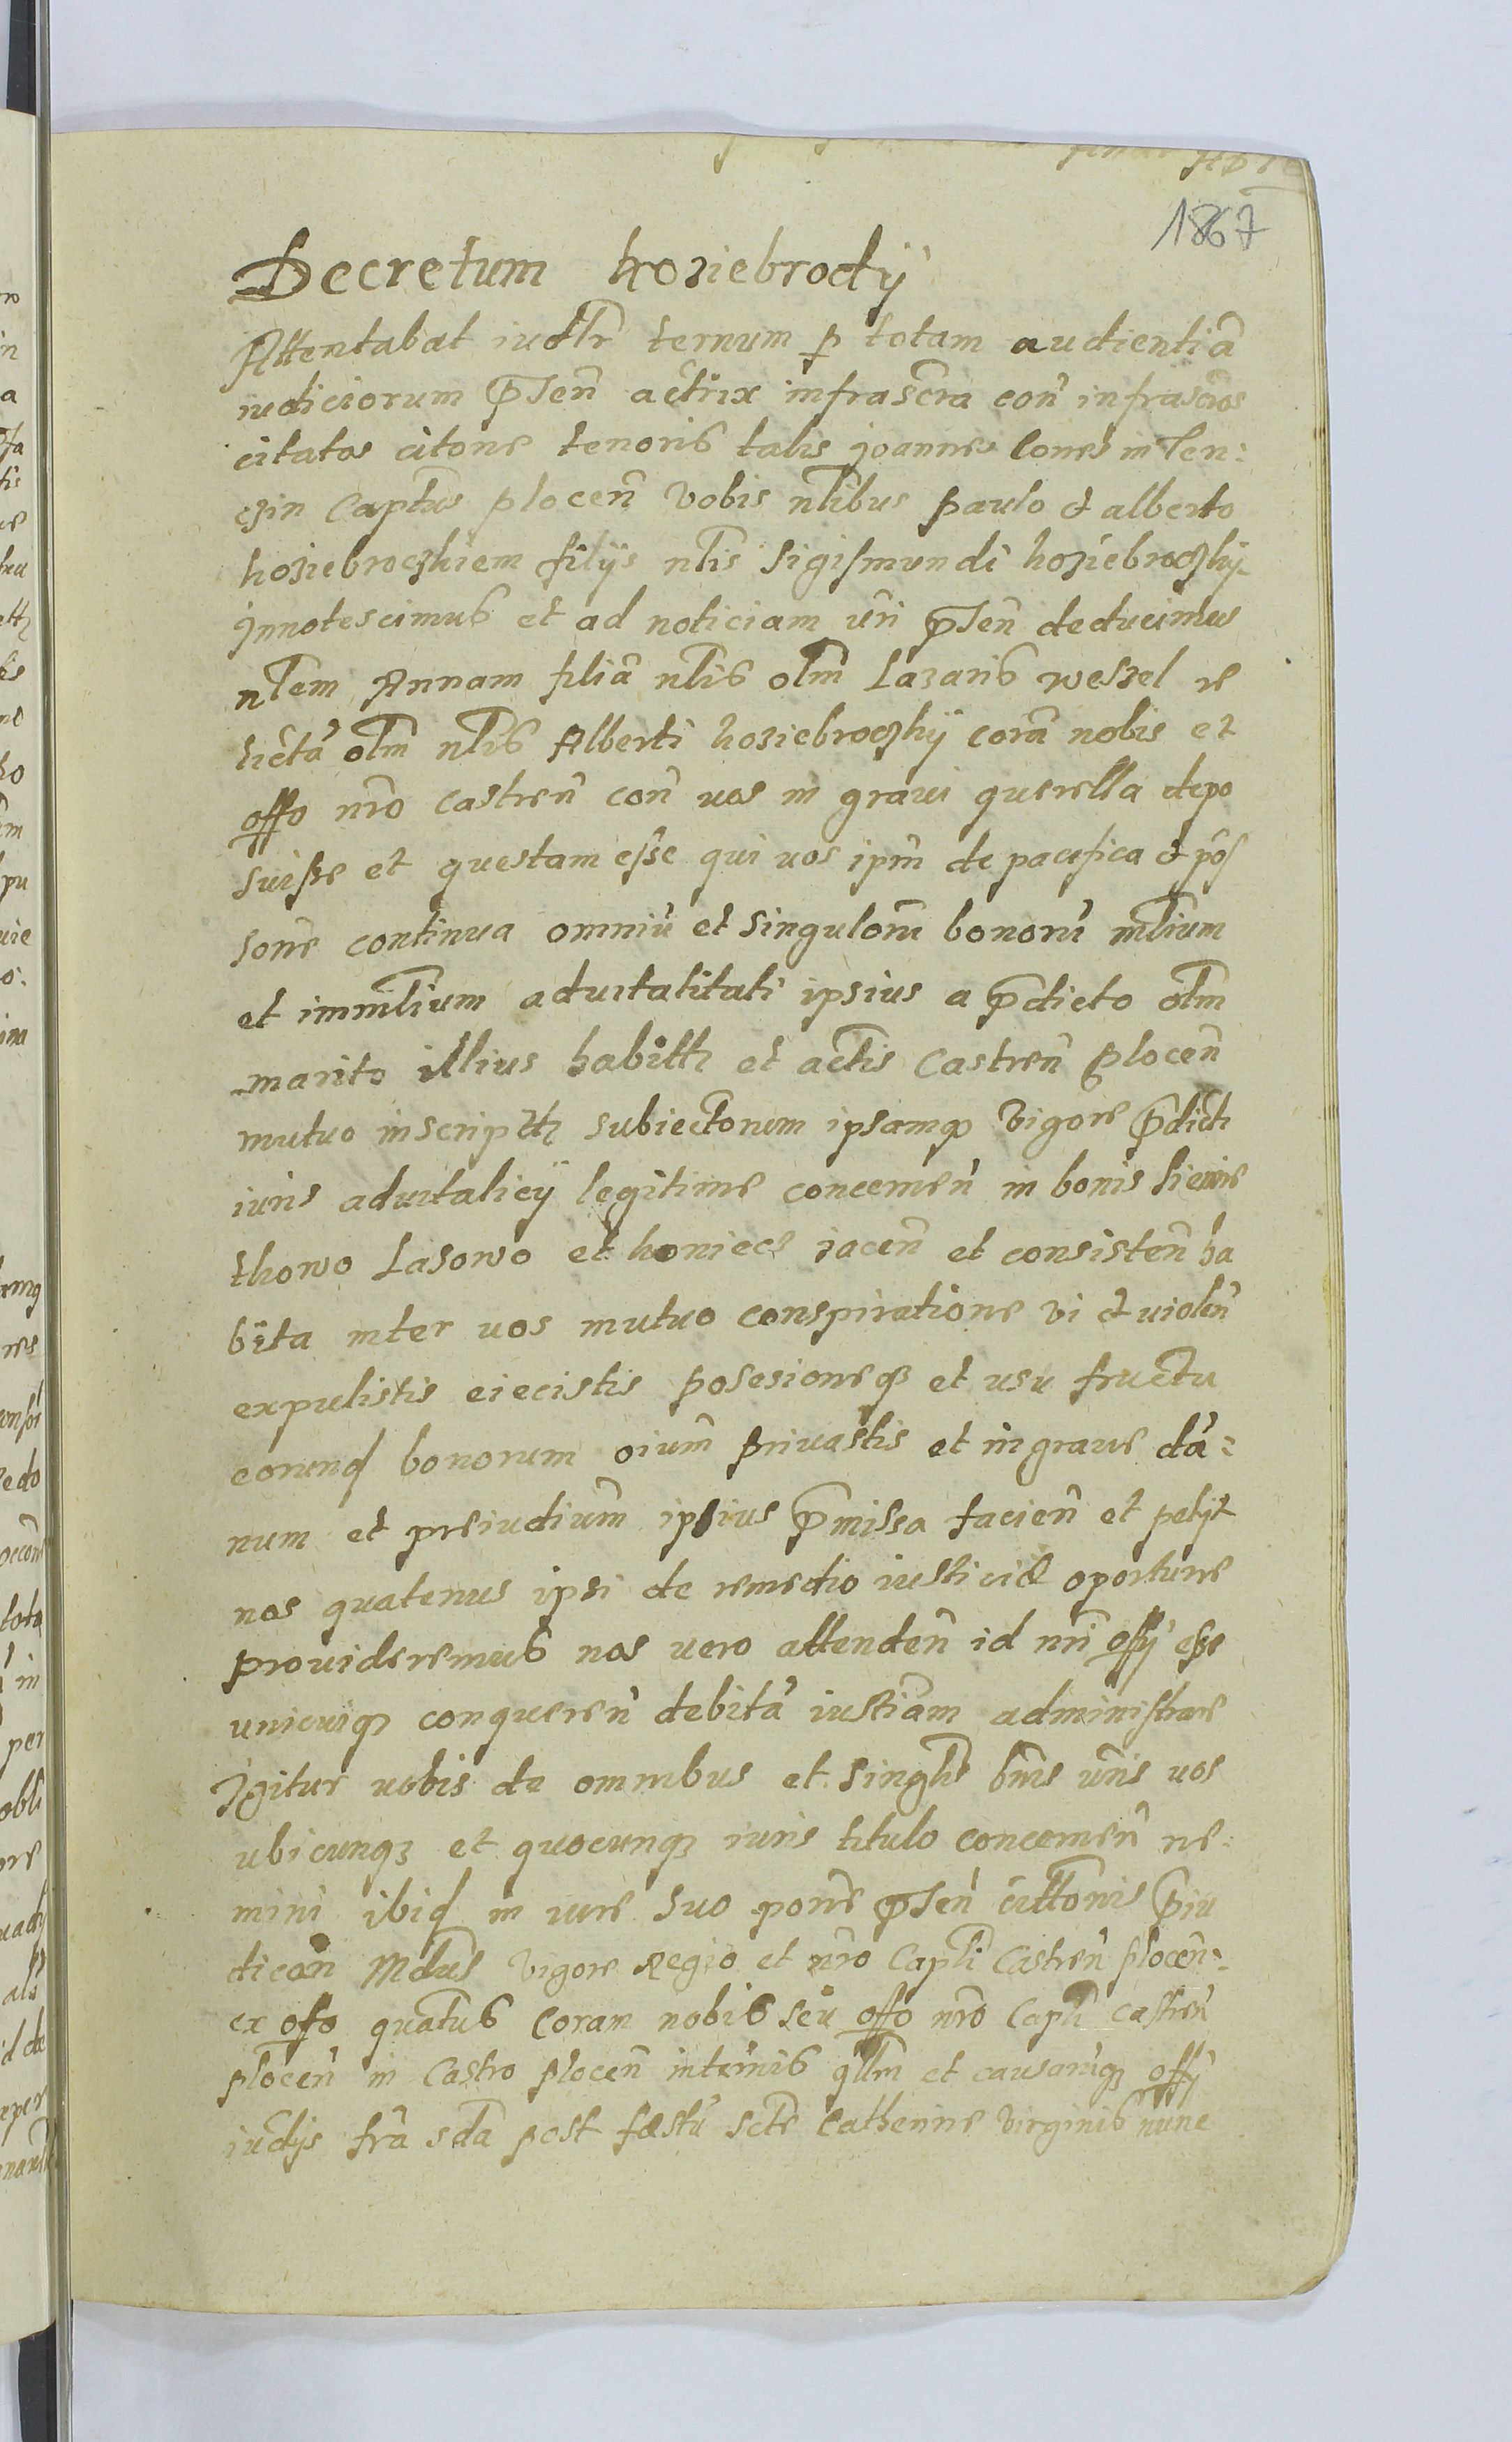 1867
Decretum koziebrody
Attentabat iudlr ternum p totam audientiã
iudiciorum pñten actrix infrascra con infrascros
citatos citone tenoris talis joannes Cones in Len:
czin Captus plocen Vobis nlibus paulo et alberto
koziebroczkiem filijs nlis Sigismundi koziebroczky
Innotescimus et ad noticiam vri pñten deducimus
nlem Annam filiã nlis olm Lazaris wessel re
lictã olm nlis Alberti koziebroczkij corã nobis et
offo nro castren con uos in graui querella depo
suisse et questam esse qui uos ipm de pacifica et pos
sone continua omniũ et Singulorm bonorũ mlium
et immlium aduitalitati ipsius a pdicto olm
marito illius habitth et actis Castren plocen
mutuo inscriptth subiectorum ipsamq Vigore pdicti
iuris aduitalicij legitime concernen in bonis Siemie
thowo Lasowo et koniecz iacen et consisten ha
bita inter uos mutuo conspiratione vi et violen
expulistis eiecistis posesioneqz et usu fructu
eorund bonorum oium priuastis et in graue dã:
num et preiudium ipsius pmissa facien et petijt
nos quatenus ipsi de remedio iusticiæ oportune
prouideremus nos uero attenden id nri offy esse
unicuiqz conqueren debitã iustiam administrare
Igitur uobis de omnibus et Singlis bnis vris uos
ubicunqz et quocunqz iuris titulo concernen ne:
mini ibid in iure Suo pone pñten cittonis piu
dican Mdus Vigore Regio et nro Capli Castren plocen:
ex offo quatus Coram nobis seu offo nro Capli castren
plocen in Castro plocen in termis qllm et causarũqz offy
iudijs fra sda post fæstũ scte Catherine Virginis nunc